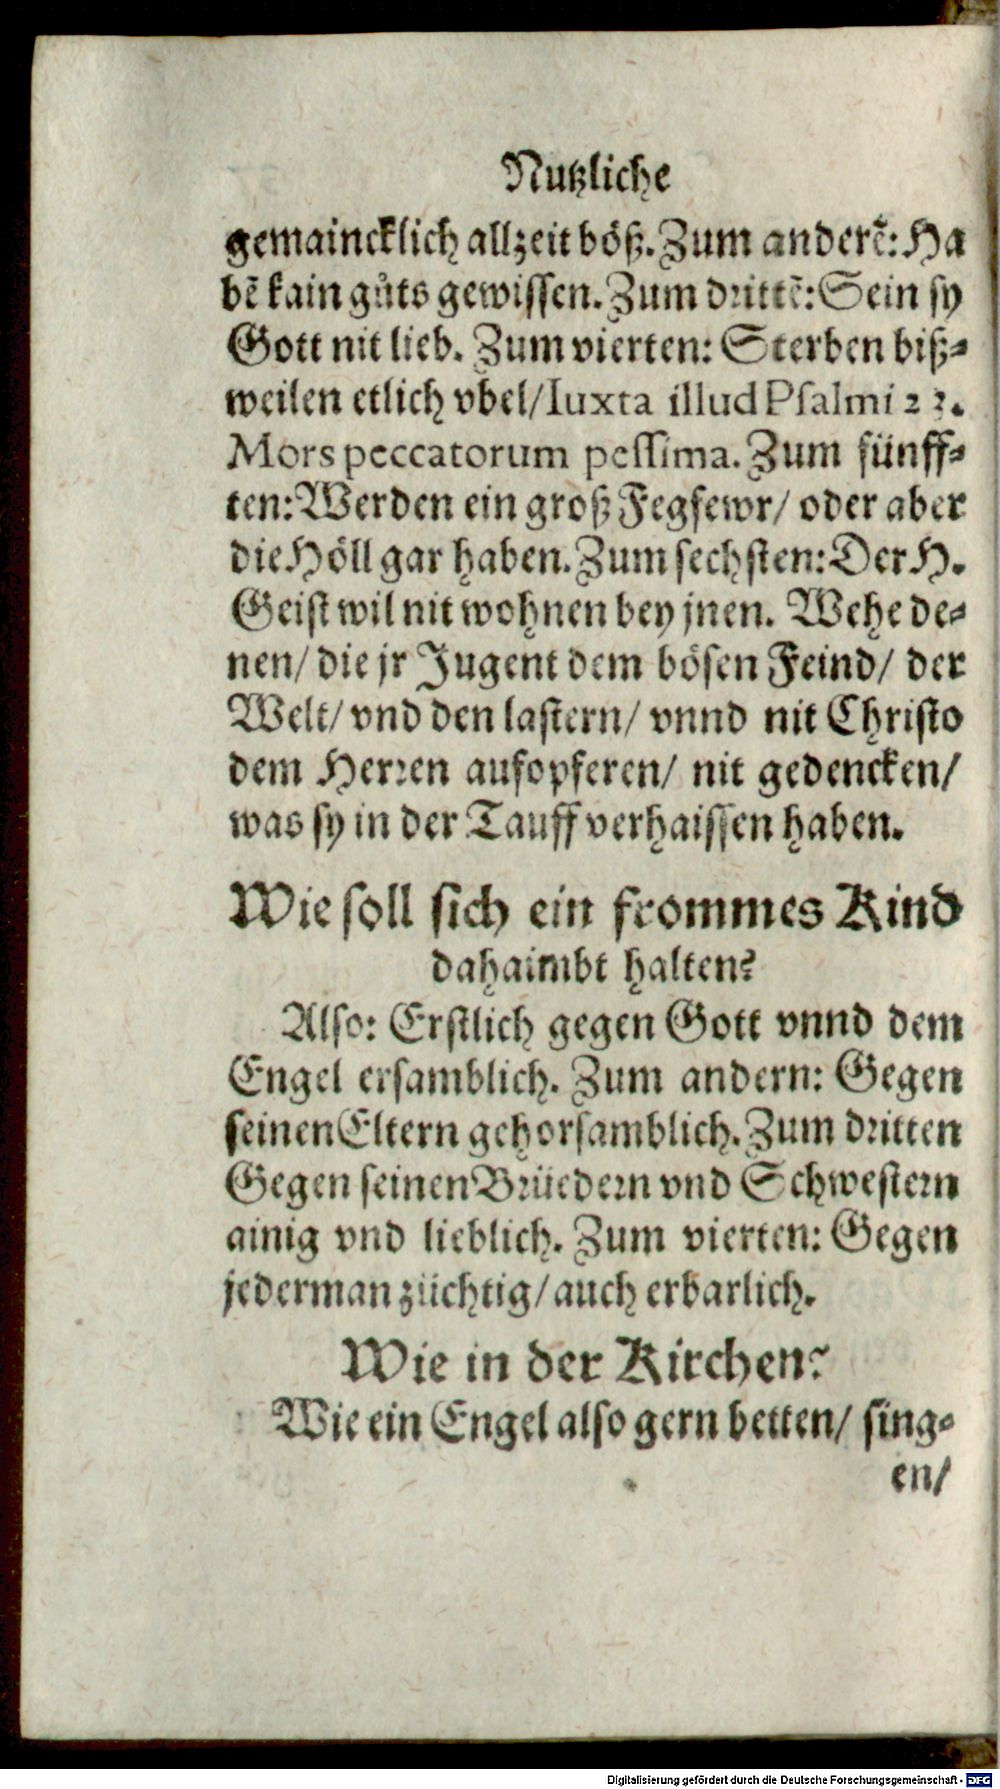 Nutzliche
gemaincklich allzeit böß. Zum anderẽ: Ha
bẽ kain gůts gewissen. Zum drittẽ: Sein sy
Gott nit lieb. Zum vierten: Sterben biß-
weilen etlich vbel/ Iuxta illud Psalmi 23.
Mors peccatorum pessima. Zum fünff-
ten: Werden ein groß Fegfewr/ oder aber
die Höll gar haben. Zum sechsten: Der H.
Geist wil nit wohnen bey jnen. Wehe de-
nen/ die jr Jugent dem bösen Feind/ der
Welt/ vnd den lastern/ vnnd nit Christo
dem Herren aufopferen/ nit gedencken/
was sy in der Tauff verhaissen haben.
Wie soll sich ein frommes Kind
dahaimbt halten?
Also: Erstlich gegen Gott vnnd dem
Engel ersamblich. Zum andern: Gegen
seinen Eltern gehorsamblich. Zum dritten
Gegen seinen Brüedern vnd Schwestern
ainig vnd lieblich. Zum vierten: Gegen
jederman züchtig/ auch erbarlich.
Wie in der Kirchen?
Wie ein Engel also gern betten/ sing-
en/
Digitalisierung gefördert durch die Deutsche Forschungsgemeinschaft - DFG